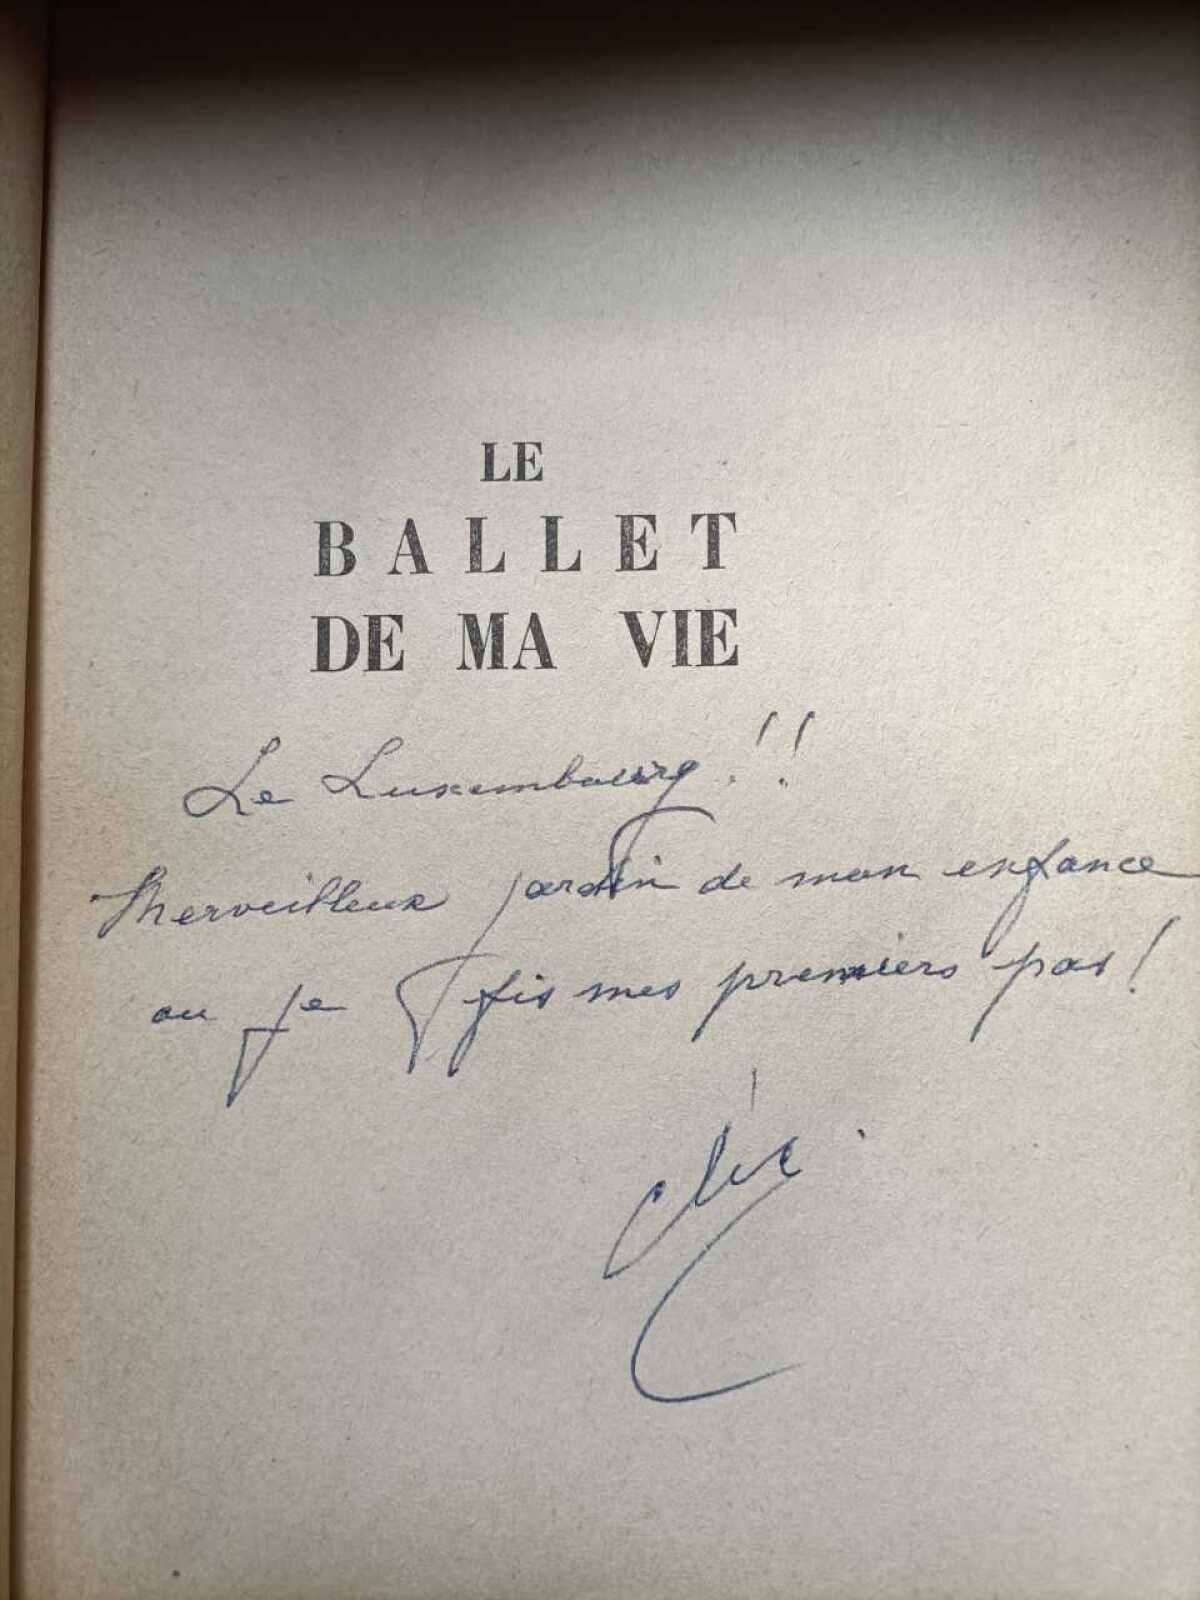 LE
BALLET
DE MA VIE
Le Luxembourg!!
Merveilleux jardin de mon enfance
ou je fis mes premiers pas!